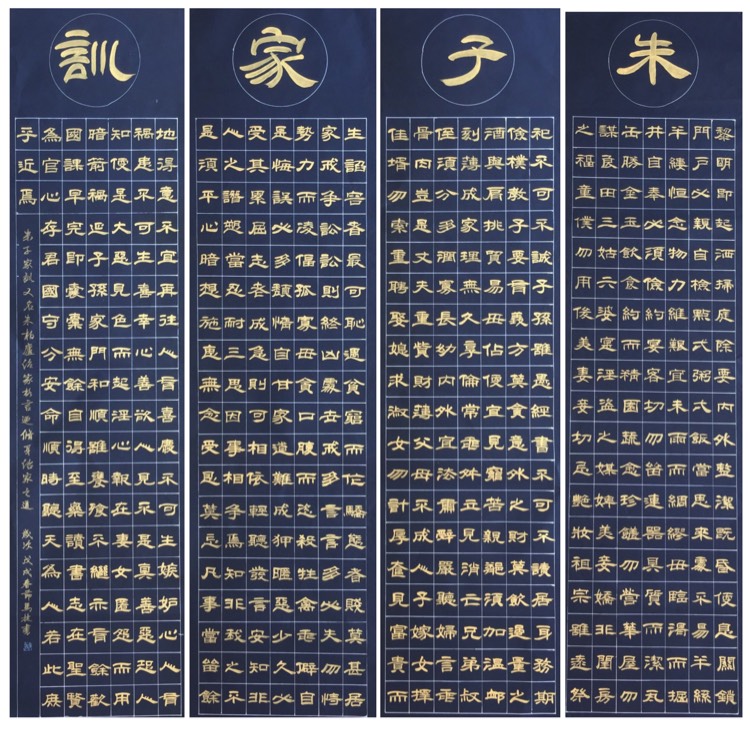 朱子家訓
黎明即起洒掃庭除要內外整潔既昏便息關鎖
門戶必親自檢點式粥式飯當思來處不易半絲
半縷恒念物力維艱宜未雨而綢繆毋臨渴而掘
井自奉必須儉約宴客切勿留連器具質而潔瓦
缶勝金玉飲食約而精園蔬愈珍饈勿營華屋勿
謀良田三姑六婆實淫盜之媒婢美妾嬌非閨房
之福童僕勿用俊美妻妾切忌艷妝祖宗雖遠祭
祀不可不誠子孫雖愚經書不可不讀居身務期
儉樸教子要有義方莫貪意外之財莫飲過量之
酒與肩挑貿易毋佔便宜見窮苦親鄰須加溫卹
刻薄成家理無久享倫常乖舛立見消亡兄弟叔
侄須分多潤寡長幼內外宜法肅辭嚴聽婦言乖
骨肉豈是丈夫重貲財薄父母不成人子嫁女擇
佳婿勿索重聘娶媳求淑女勿計厚奩見富貴而
生諂容者最可恥遇貧窮而作驕態者賤莫甚居
家戒爭訟訟則終凶處世戒多言言多必失勿恃
勢力而凌逼孤寡毋貪口腹而恣殺牲禽乖僻自
是悔誤必多頹惰自甘家道難成狎暱惡少久必
受其累屈志老成急則可相依輕聽發言安知非
人之譖愬當忍耐三思因事相爭焉知非我之不
是須平心暗想施惠無念受恩莫忘凡事當留餘
地得意不宜再往人有喜慶不可生嫉妒心人有
禍患不可生喜幸心善欲人見不是真善惡恐人
知便是大惡見色而起淫心報在妻女匿怨而用
暗箭禍延子孫家門和順雖饔飧不繼亦有餘歡
國課早完即囊橐無餘自得至樂讀書志在聖賢
為官心存君國守分安命順時聽天為人若此庶
乎近焉
朱子家訓又名朱柏廬治家格言 脩身治家之道 歲次戊戌春節馬 書